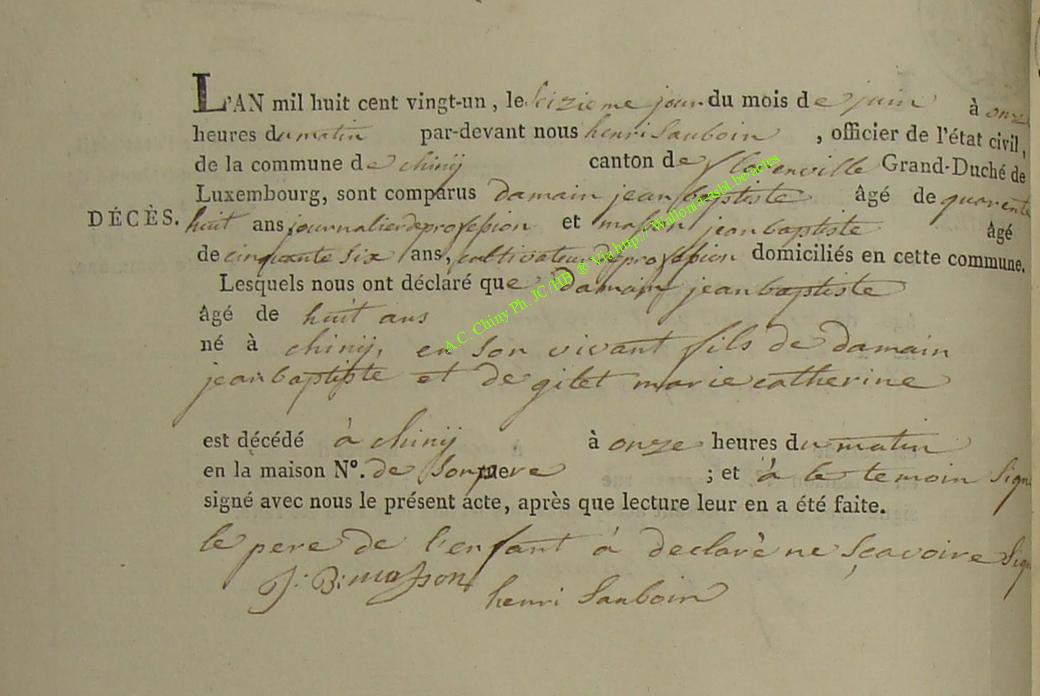 L'AN mil huit cent vingt-un, le seizieme jour du mois de juin à onze
heures du matin par-devant nous henri Sauboin, officier de l'état civil,
de la commune de chinÿ canton de florenville Grand-Duché de
Luxembourg, sont comparus damain jean baptiste âgé de quarente
DÉCÈS. huit ans journalier de profession et masson jean baptiste âgé
de cinquante six ans, cultivateur de profession domiciliés en cette commune.
Lesquels nous ont déclaré que damain jean baptiste
âgé de huit ans
né à chinÿ, en son vivant fils de damain
jean baptiste et de gilet marie catherine
est décédé à chinÿ à onze heures du matin
en la maison N°. de son pere ; et à le temoin Sign
signé avec nous le présent acte, après que lecture leur en a été faite.
le pere de l'enfant à declarè ne sçavoire Sign
J: B: masson
henri Sauboin
A.C. Chiny Ph. JC HB ® Via http://Wallonia-asbl.be/actes